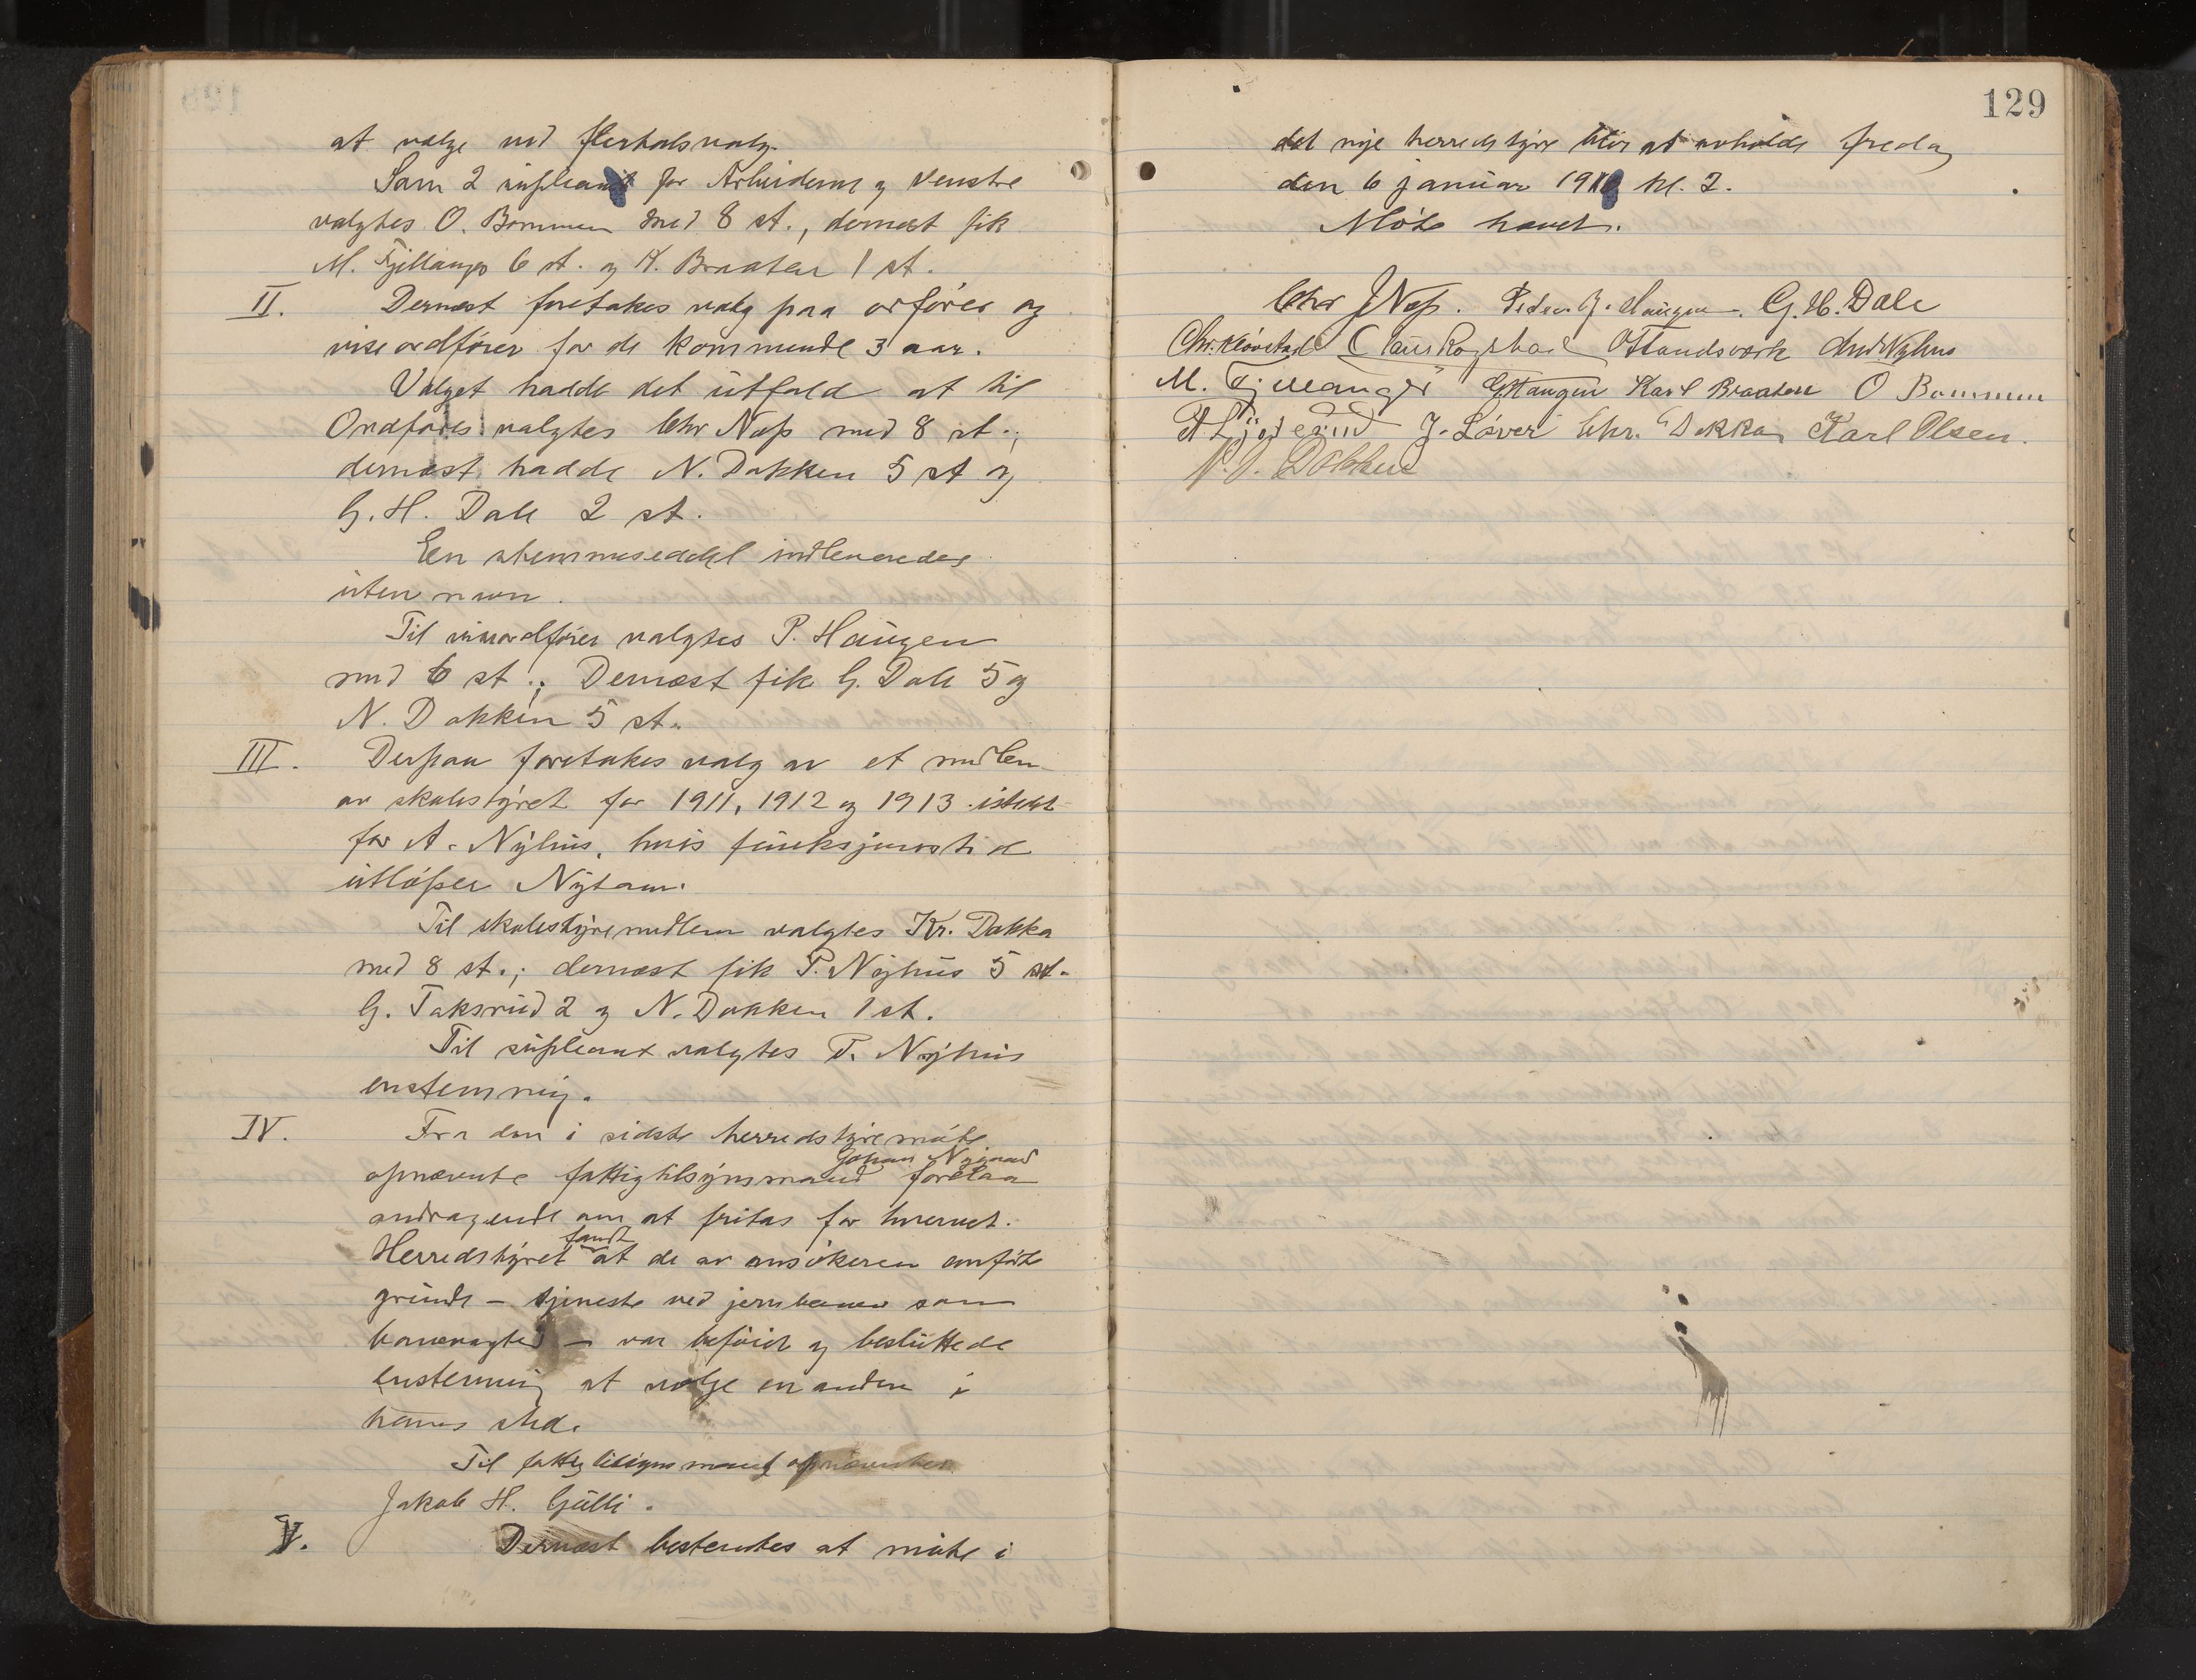 at vælge ved flertalsvalg.
Som 2 supleant for Arbeiderne og Venstre
valgtes O. Bommen med 8 st., dernæst fik
M. Fjellanger 6 st. og K. Braaten 1 st.
II. Dernæst foretokes valg paa orfører og
viseordfører for de kommende 3 aar.
Valget hadde det utfald at til
Ordfører valgtes Chr Næss med 8 st.;
dernæst hadde N. Dokken 5 st og
G. H. Dale 2 st.
En stemmeseddel indleveredes
uten navn.
Til viseordfører valgtes P. Haugen
med 6 st.; Dernæst fik G. Dale 5 og
N. Dokken 5 st.
III. Derpaa foretokes valg av et medlem
av skolestyret for 1911, 1912 og 1913 istedet
for A. Nyhus, hvis funksjonstid
utløper Nytaar.
Til skolestyremedlem valgtes Kr. Dokka
med 8 st.; dernæst fik P. Nyhus 5 st.
G. Taksrud 2 og N. Dokken 1 st.
Til supleant valgtes P. Nyhus
enstemmig.
IV. Fra den i sidste herredstyremøte
opnævnte fattigtilsynsmand Johan forelaa
andragende om at fritas for hvervet.
Herredstyret fandt at de av ansøkeren anførte
grunde — tjeneste ved jernbanen som
banevagt — var beføiet og besluttede
enstemmig at vælge en anden i
hannes sted.
Til fattigtilsynsmand opnævntes
Jakob H. Gulli.
V. Dernæst bestemtes at møte i
129
det nye herredstyre blir at avholde fredag
den 6 januar 191 kl. 2.
Møte hævet.
Chr J Næss. Peder J. Haugen. G. H. Dale
Chr. Kløvstad Claus Rogstad O Landsværk And Nyhus
M. Fjellanger G Haugen Karl Braaten O Bommen
J. Løver Chr. Dokka Karl Olsen.
N. J. Dokken